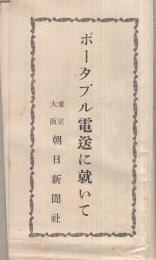 ポータブル電送に就いて
東京
大阪
朝日新聞社